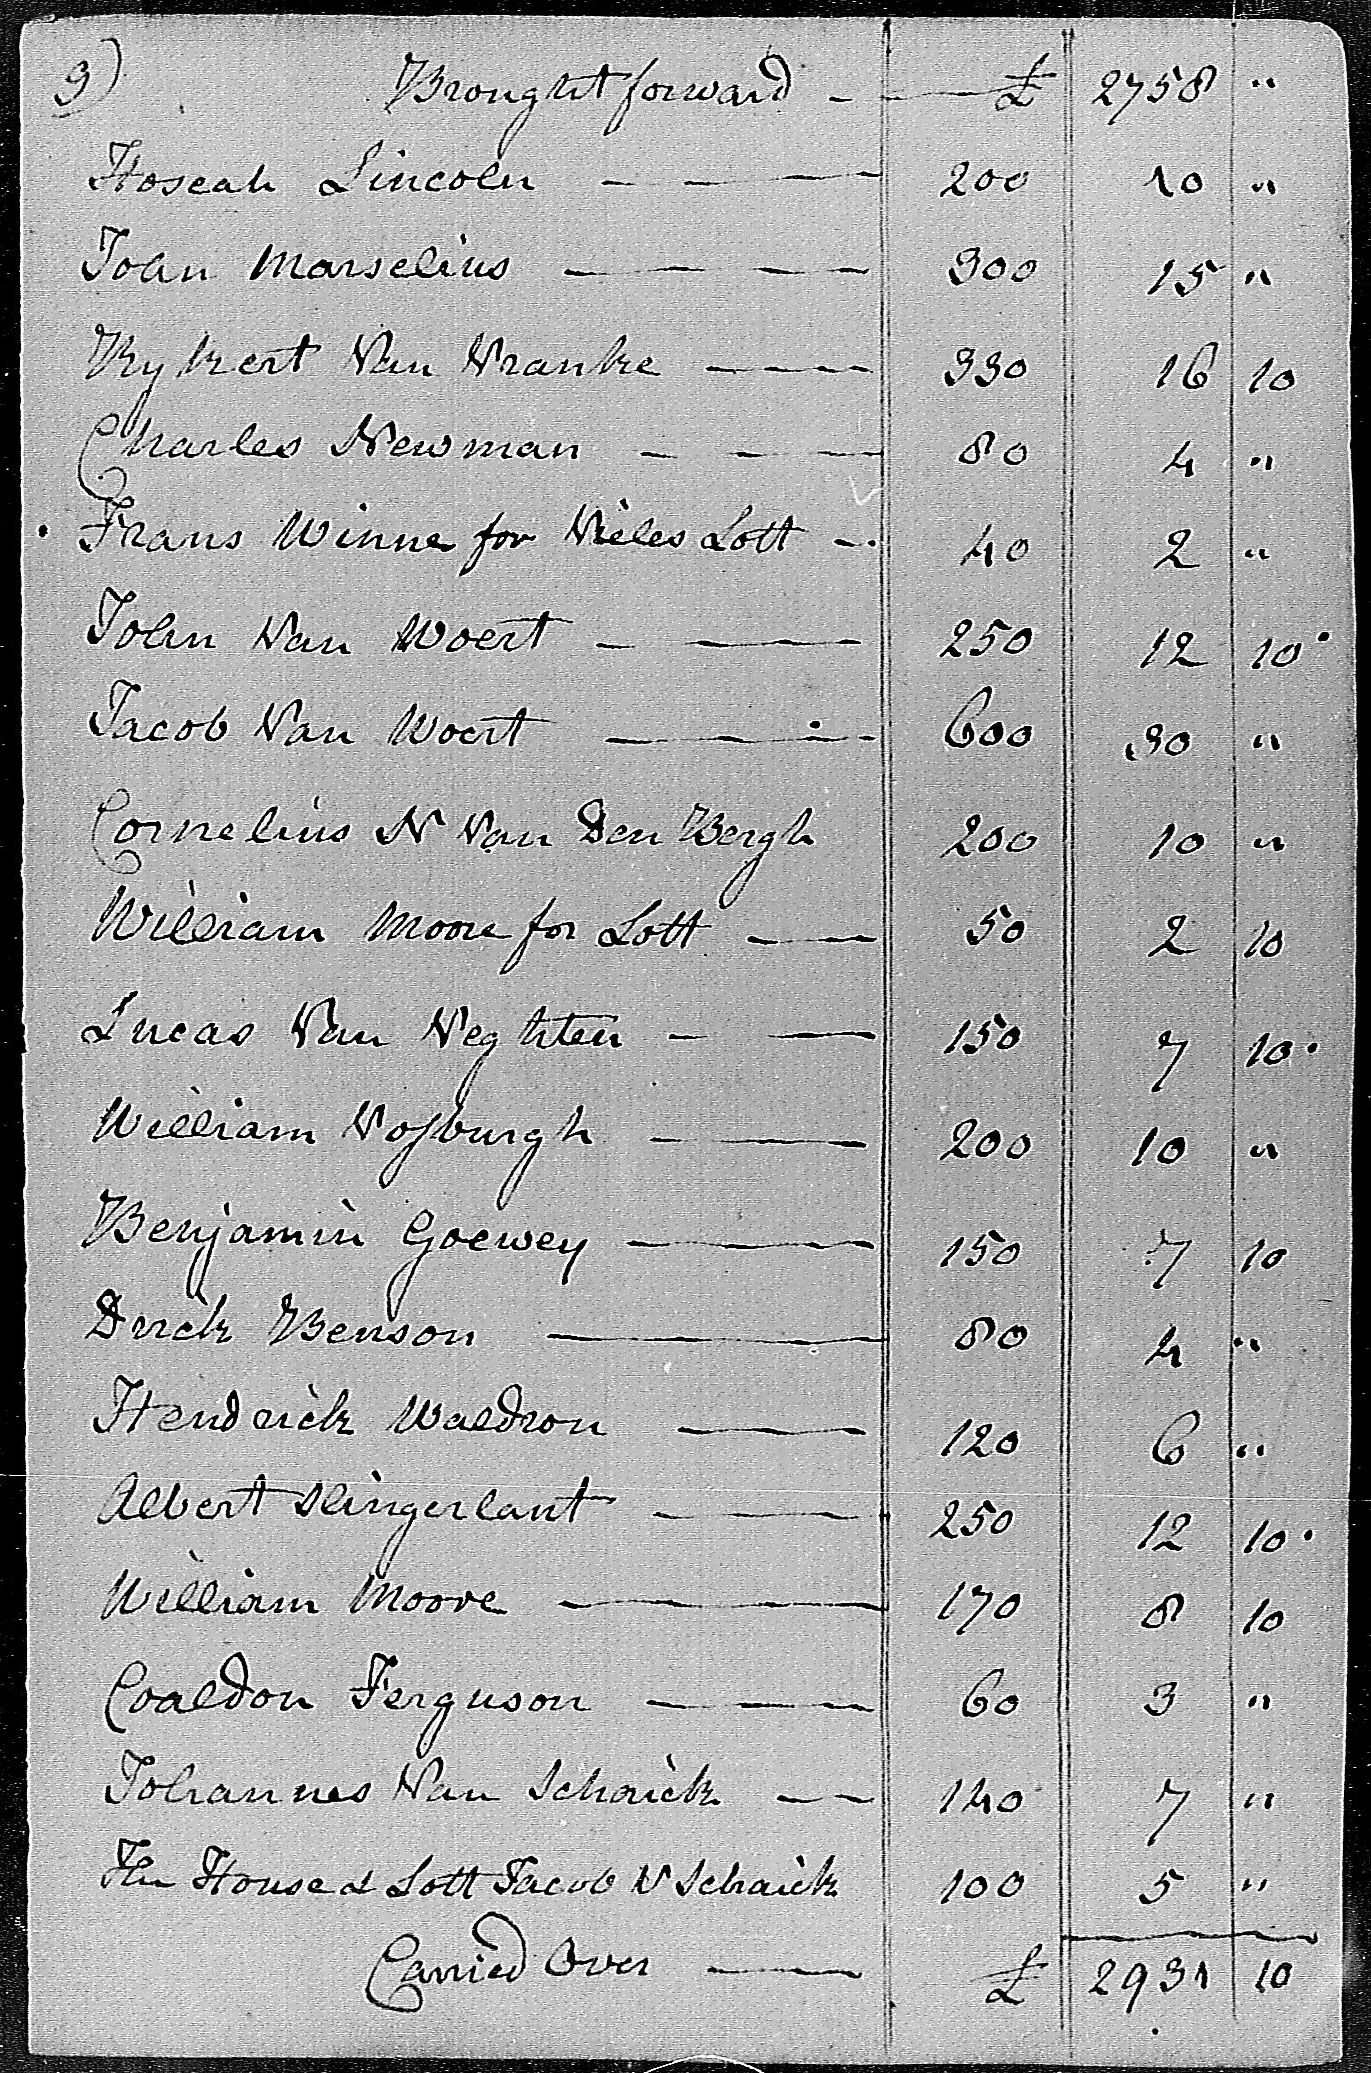 9) Brought forward - £ 2758 "
Hoseah Lincoln 200 10 "
John Marselius 300 15 "
Rykert Van Vranke 330 16 10
Charles Newman 80 4 "
Frans Winne for Vieles Lott 40 2 "
John Van Woert 250 12 10
Jacob Van Woert 600 30 "
Cornelius N Van Den Bergh 200 10 "
William Moore for Lott 50 2 10
Lucas Van Veghten 150 7 10
William Vosburgh 200 10 "
Benjamin Goewey 150 7 10
Dirck Benson 80 4 "
Hendrick Waldron 120 6 "
Albert Slingerlant 250 12 10
William Moore 170 8 10
Coaldon Ferguson 60 3 "
Johannes Van Schaick 140 7 "
The House & Lott Jacob V Schaick 100 5 "
Carried Over £ 2931 10